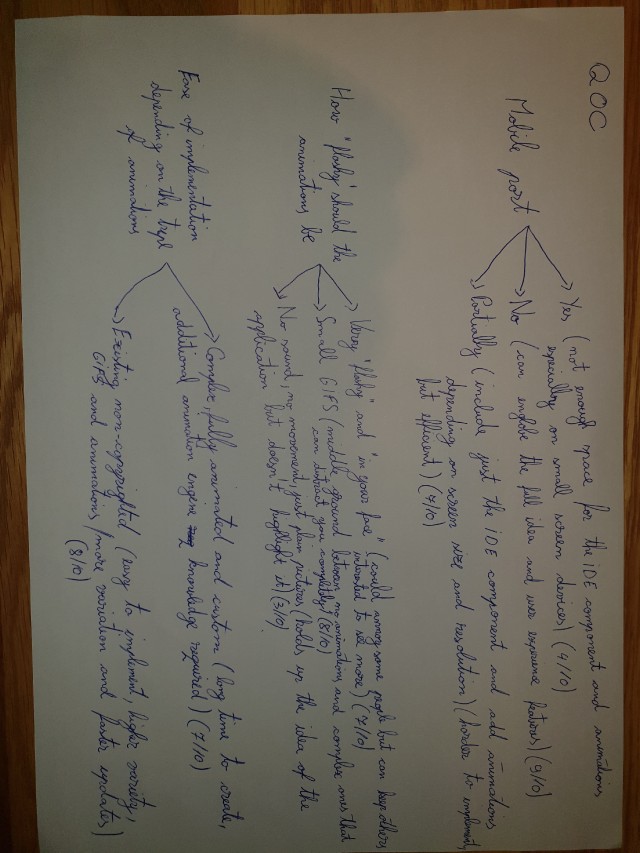 QOC
Mobile port
Yes (not enough space for the IDE component and animations
especially on small screen devices) (4/10)
No (can englobe the full idea and user experience features) (9/10)
Partially (include just the IDE component and add animations
depending on screen size and resolution) (harder to implement,
but efficient) (7/10)
How "flashy" should the
animations be
Very "flashy" and "in your face" (could annoy some people but can keep others
interested to see more) (7/10)
Small GIFS (middle ground between no animations and complex ones that
can distract you completely) (8/10)
No sound, no movement, just plain pictures (holds up the idea of the
application but doesn't highlight it) (3/10)
Ease of implementation
depending on the type
of animations
Complex, fully animated and custom (long time to create,
additional animation engine knowledge required) (7/10)
Existing non-copyrighted (easy to implement, higher variety,
GIFS and animations / more variation and faster updates)
(8/10)